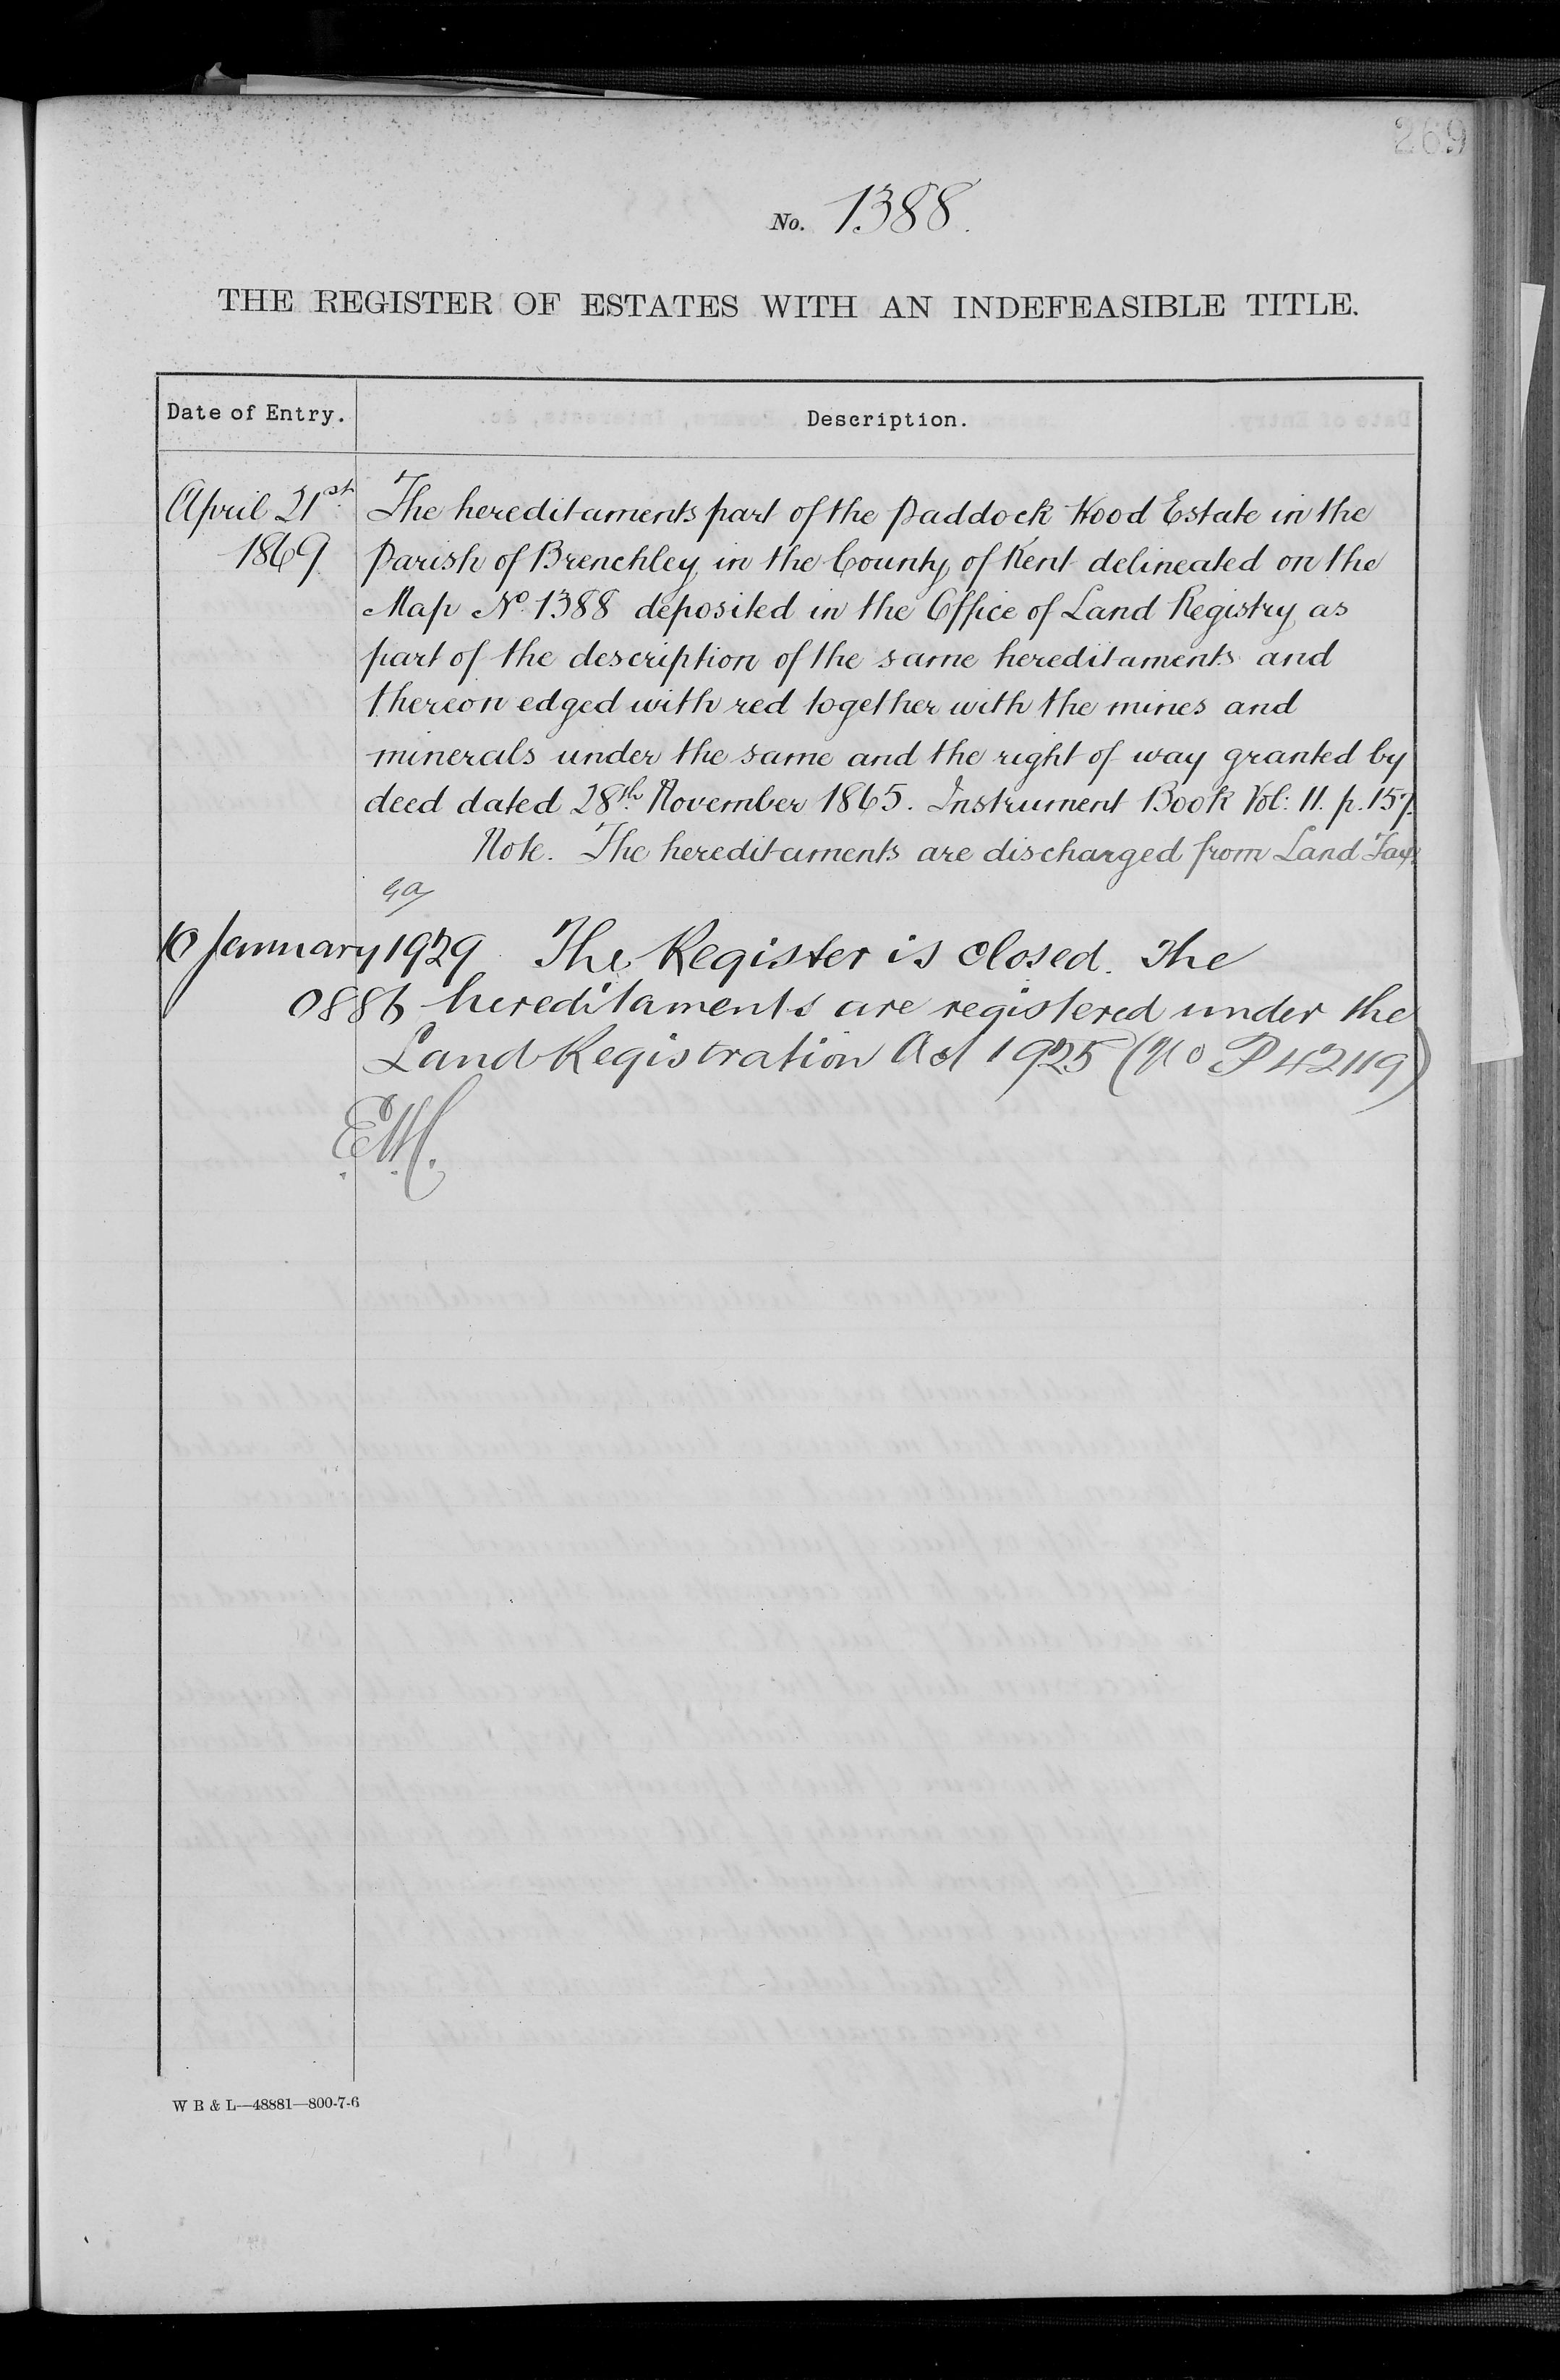 269
No. 1388.
THE REGISTER OF ESTATES WITH AN INDEFEASIBLE TITLE.
Date of Entry.
Description.
April 21st.
1869
The hereditaments part of the Paddock Wood Estate in the
Parish of Brenchley in the County of Kent delineated on the
Map No. 1388 deposited in the Office of Land Registry as
part of the description of the same hereditaments and
thereon edged with red together with the mines and
minerals under the same and the right of way granted by
deed dated 28th. November 1865. Instrument Book Vol: 11. p. 157.
Note. The hereditaments are discharged from Land Tax.
10 January 1929 The Register is closed. The
0886 hereditaments are registered under the
Land Registration Act 1925 (No P 42119)
W B & L—48881—800-7-6